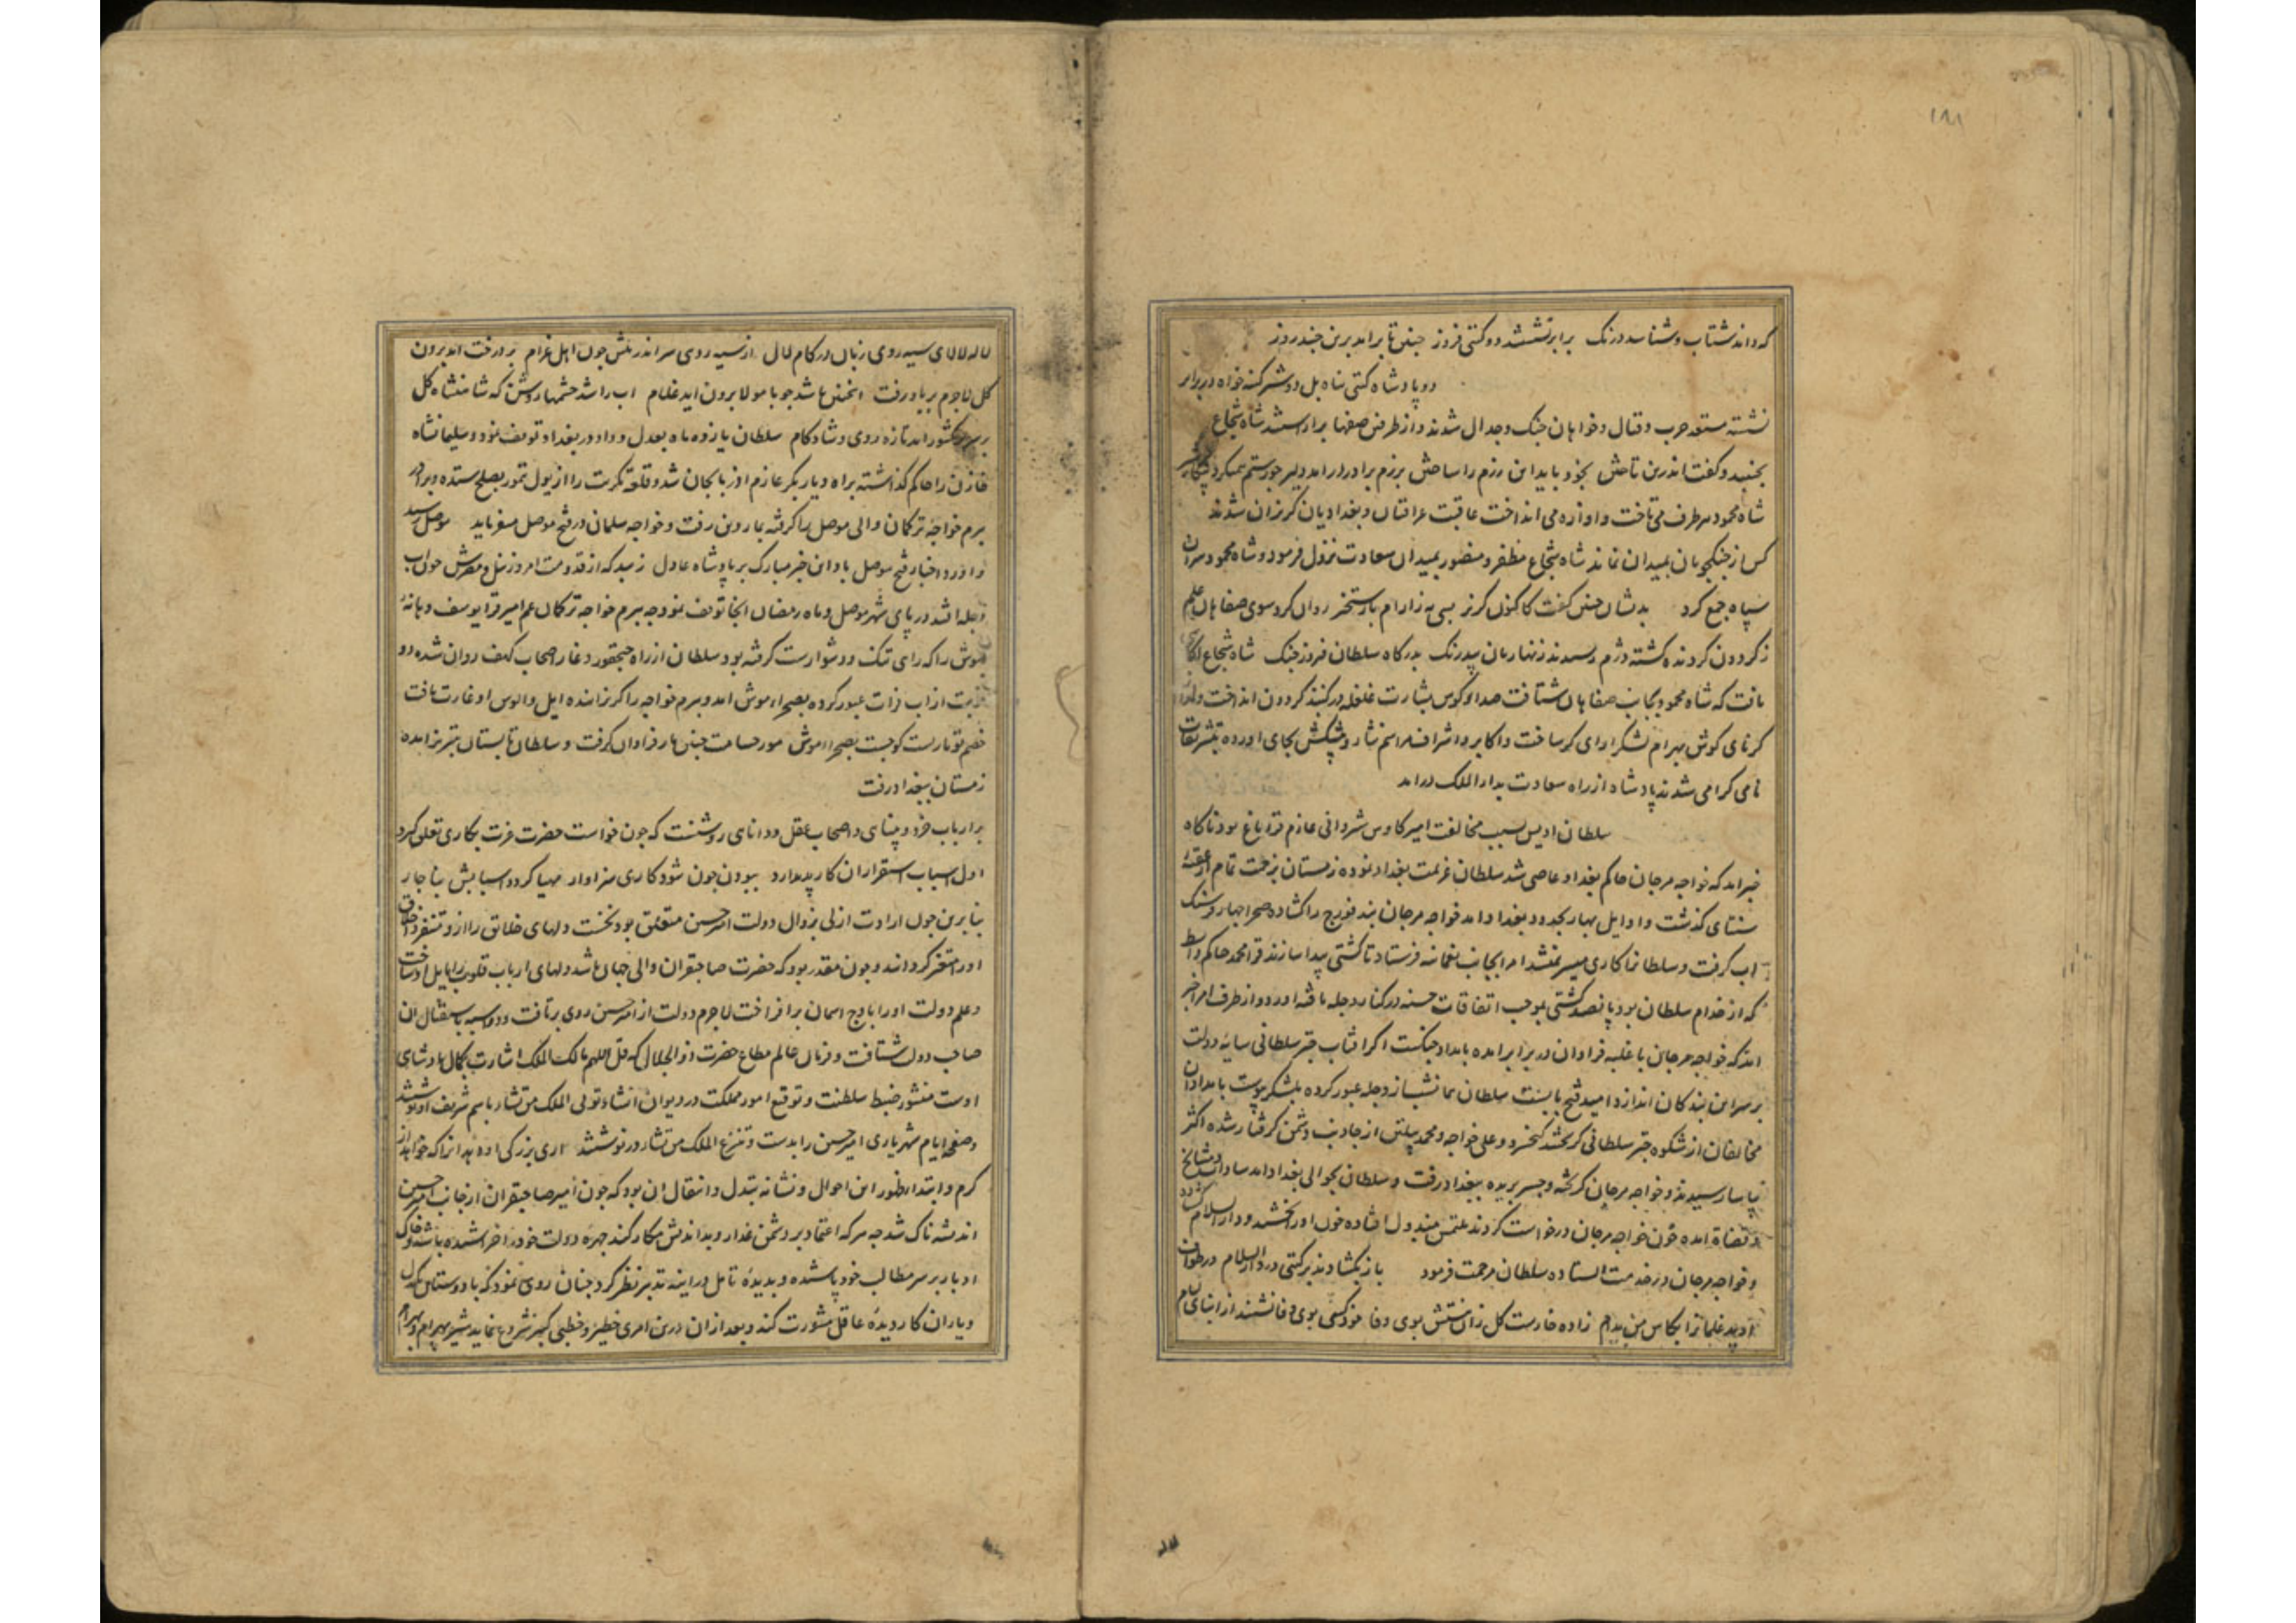 ۱۸۱
که داند شتاب و شناسد درنک برابر نشستند دو کتی فروز چنین تا برامد برین چند روز
دو پادشاه کتی پناه بل دو شیر کینه خواه در برابر
نشسته مستعد حرب و قتال و خواهان جنک و جدال شدند و از طرفین صفها براراستند شاه شجاع
بجنبید و کفت اندرین تاختن بخود باید این رزم را ساختن برزم برادر درامد دلیر چو رستم همیکرد
شاه محمود هر طرف می تاخت و اوازه می انداخت عاقبت عراقیان و بغدادیان کریزان شدند
کس از جنکجویان بمیدان نماند شاه شجاع مظفر و منصور بمیدان سعادت نزول فرمود و شاه محمود سران
سپاه جمع کرد بدیشان چنین کفت کاکنون کریز بسی به زارام با رستخیز روان کرد سوی صفاهان علم
ز کردون کردنده کشته دژم رسیدند زنهاریان بیدرنک بدرکاه سلطان فروز جنک شاه شجاع اکاهی
یافت که شاه محمود بجانب صفاهان شتافت صدای کوس بشارت غلغله در کنبد کردون انداخت و اواز
کرنای کوش بهرام لشکرارای کر ساخت و اکابر و اشراف مراسم نثار و پیشکش بجای اورده بتشریفات
نامی کرامی شدند پادشاه از راه سعادت بدار الملک درامد
سلطان اویس بسبب مخالفت امیر کاوس شروانی عازم قراباغ بود ناکاه
خبر امد که خواجه مرجان حاکم بغداد عاصی شد سلطان عزیمت بغداد نموده زمستان بزحمت تمام از عقبه
سنتای کذشت و اوایل بهار بحدود بغداد امد خواجه مرجان بند فورج را کشاده صحرا چهار فرسنک
اب کرفت و سلطانرا کاری میسر نمیشد امرا بجانب نعمانیه فرستاد تا کشتی پیدا سازند قرا محمد حاکم واسط
که از خدام سلطان بود پانصد کشتی بموجب اتفاقات حسنه در کنار دجله یافته اورد و از طرف امرا خبر
امد که خواجه مرجان با غلبه فراوان در برابر امده بامداد جنکست اکر افتاب چتر سلطانی سایه دولت
بر سر این بندکان اندازد امید فتح باب است سلطان همانشب از دجله عبور کرده بلشکر پیوست بامدادان
مخالفان از شکوه چتر سلطانی کریختند کیخسرو و علی خواجه و محمد پیلتن از جانب دشمن کرفتار شده اکثر
بیاسا رسیدند و خواجه مرجان کریخته و جسر بریده ببغداد رفت و سلطان بحوالی بغداد امد سادات و مشایخ
و قضاة امده خون خواجه مرجان درخواست کردند ملتمس مبذول افتاده خون او را بخشید و دار السلام کشاده
و خواجه مرجان در خدمت ایستاده سلطان مرحمت فرمود باز بکشادند بر کتی در دار السلام در طواف
زاده خارست کل زان نیستش بوی وفا خود کسی بوی وفا نشنید از ابنای لیام
لاله لالای سیه روی زبان در کام لال از سیه روی سر اندر پیش چون اهل غرام بر درخت امد برون
کل لاجرم بر باد رفت اینچنین باشد چو با مولا برون اید غلام اب را شد چشمها روشن که شاهنشاه کل
بر سریر کشور امد تازه روی و شادکام سلطان یازده ماه بعدل و داد در بغداد توقف نمود و سلیمانشاه
خازن را حاکم کذاشته براه دیار بکر عازم اذربایجان شد و قلعه تکریت را از پول تمور بصلح ستده و برادر
بیرم خواجه ترکمان والی موصل را کرفته بماردین رفت و خواجه سلمان در فتح موصل میفرماید موصل رسید
و اورد اخبار فتح موصل باد این خبر مبارک بر پادشاه عادل زیبد که از قدومت امروز نیل و مصرش چون اب
دجله افتد در پای شهر موصل و ماه رمضان انجا توقف نمود چه بیرم خواجه ترکمان عم امیر قرا یوسف دهانه
موش را که راهی تنک و دشوارست کرفته بود سلطان از راه جبقجور و غار اصحاب کهف روان شده دو
نوبت از اب فرات عبور کرده بصحراء موش امد و بیرم خواجه را کریزانیده ایل و الوس او غارت یافت
خصم تو مارست کو جست بصحراء موش مور حسامت چنین مار فراوان کرفت و سلطان تابستان بتبریز امده
زمستان ببغداد رفت
بر ارباب خرد و بینای و اصحاب عقل و دانای روشنست که چون خواست حضرت عزت بکاری تعلق کیرد
اول اسباب استقرار ان کار پدید ارد ببودن چون شود کاری سزاوار مهیا کردد اسبابش بناچار
بنابرین چون ارادت ازلی بزوال دولت امیر حسین متعلق بود نخست دلهای خلایق را ازو متنفر و اخلاق
او را متغیر کردانید و چون مقدر بود که حضرت صاحبقران والی جهان باشد دلهای ارباب قلوب را مایل او ساخت
و علم دولت او را باوج اسمان برافراخت لاجرم دولت از امیر حسین روی برتافت و دو اسبه باستقبال ان
صاحب دولت شتافت و فرمان عالم مطاع حضرت ذو الجلال که قل اللهم مالک الملک اشارت بکمال پادشاهی
اوست منشور ضبط سلطنت و توقیع امور مملکت در دیوان انشاء توتی الملک من تشاء باسم شریف او نوشتند
و صفحه ایام شهریاری امیر حسین را بدست و تنزع الملک من تشاء در نوشتند اری بزرکی او دهد انرا که خواهد از
کرم و ابتداء ظهور این احوال و نشانه تبدل و انتقال ان بود که چون امیر صاحبقران از جانب امیر حسین
اندیشه ناک شد چه هر که اعتماد بر دشمن غدار و بداندیش مکار کند چهره دولت خود را خراشیده باشد و خاک
ادبار بر سر مطالب خود پاشیده و بدیده تامل در اینه تدبیر نظر کرد چنان روی نمود که با دوستان یکدل
و یاران کار دیده عاقل مشورت کند و بعد ازان درین امری خطیر و خطبی کبیر شروع نماید